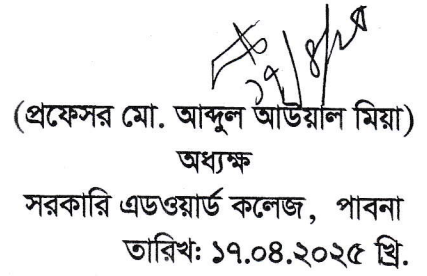 ১৭/৪/২৫
(প্রফেসর মো. আব্দুল আউয়াল মিয়া)
অধ্যক্ষ
সরকারি এডওয়ার্ড কলেজ, পাবনা
তারিখ: ১৭.০৪.২০২৫ খ্রি.